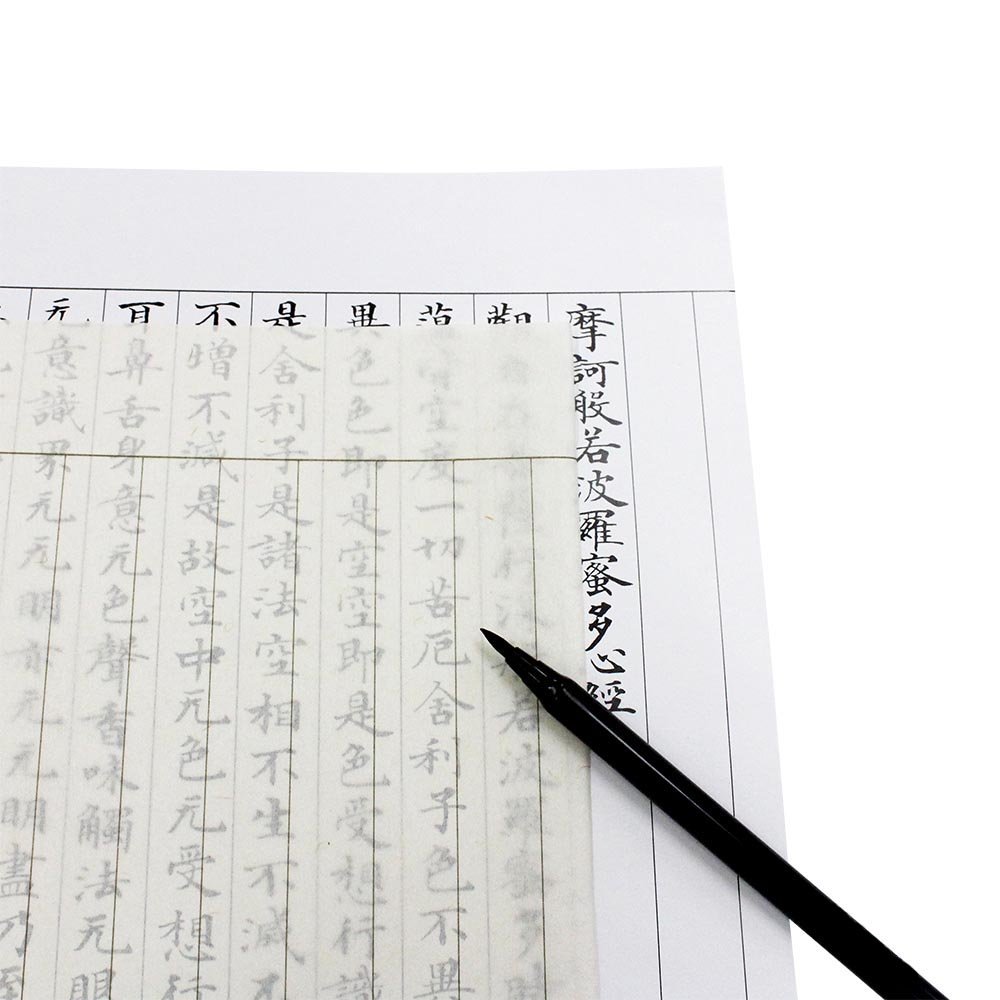 摩訶般若波羅蜜多心經
觀自在菩薩行深般若波羅蜜多時
蘊皆空度一切苦厄舍利子色不異
異色色即是空空即是色受想行識
是舍利子是諸法空相不生不滅不
不增不減是故空中无色无受想行
耳鼻舌身意无色聲香味觸法无眼
无意識界无无明亦无无明盡乃至